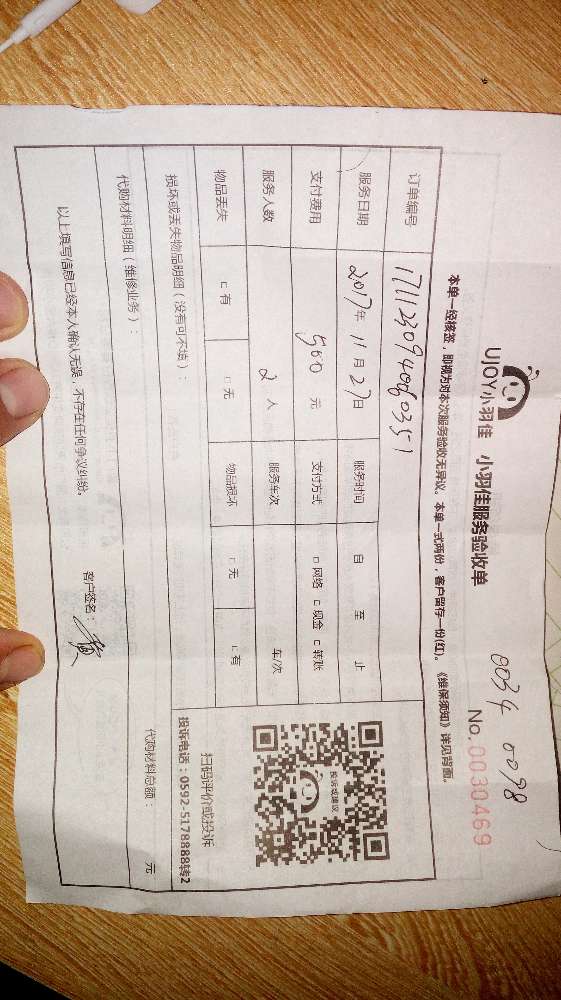 UJOY小羽佳 小羽佳服务验收单
0034 0098
No.0030469
本单一经核签，即视为对本次服务验收无异议。本单一式两份，客户留存一份(红)。《维保须知》详见背面。
订单编号 1711230940060351
服务日期 2017年 11月 27日 服务时间 自 至 止
支付费用 500 元 支付方式 □网络 □现金 □转账
服务人数 2 人 服务车次 车/次
物品丢失 □有 □无 物品损坏 □无 □有
投诉或建议
扫码评价或投诉
投诉电话：0592-5178888转2
损坏或丢失物品明细（没有可不填）
代购材料明细（维修业务）： 代购材料总额： 元
以上填写信息已经本人确认无误，不存在任何争议纠纷。 客户签名：